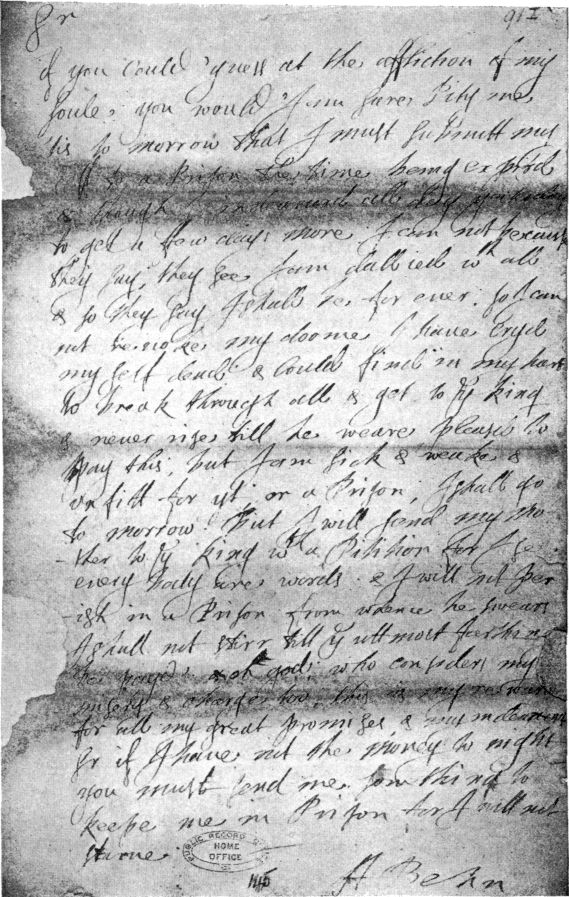 Sr
91 I
if you could guess at the affliction of my
soule, you would I am sure Pity me
'tis to morrow that I must submitt my
self to a Prison the time being expird
& though I indeavourd all day yesterday
to get a few days more I can not because
they say they see I am dallied wth all
& so they say I shall be for ever: so I can
not revoke my doome I have cryd
my self dead & could find in my hart
to break through all & get to ye king
& never rise till he weare pleasd to
pay this, but I am sick & weake &
unfitt for yt; or a Prison; I shall go
to morrow: But I will send my mo
ther to ye king wth a Pitition for I see
every body are words: & I will not per
ish in a Prison from whence he swears
I shall not stirr till ye uttmost farthing
be payd: & oh god; who considers my
misery & charge too, this is my reward
for all my great promises & my indeavors
Sr if I have not the money to night
you must send me som thing to
keepe me in Prison for I will not
starve
A Behn
PUBLIC RECORD OFFICE
HOME
OFFICE